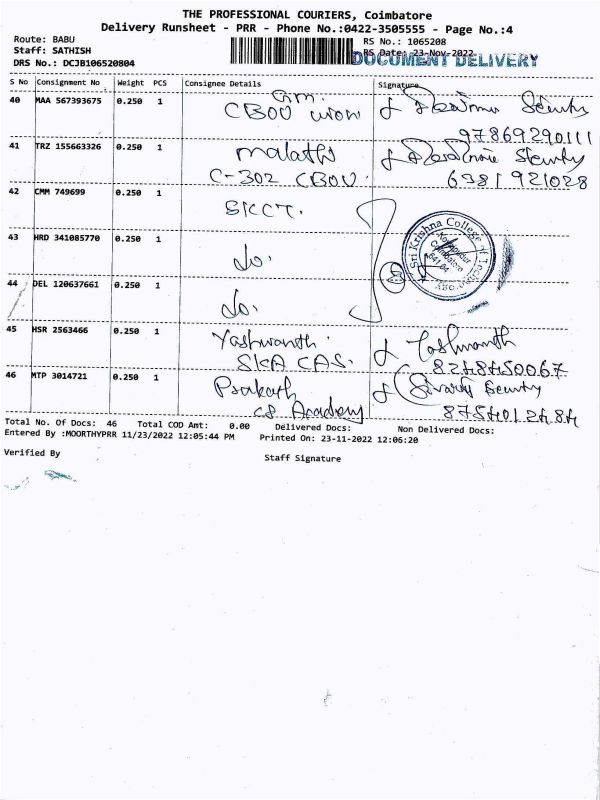 THE PROFESSIONAL COURIERS, Coimbatore
Delivery Runsheet - PRR - Phone No.:0422-3505555 - Page No.:4
Route: BABU
RS No.: 1065208
Staff: SATHISH
RS Date: 23-Nov-2022
DOCUMENT DELIVERY
DRS No.: DCJB106520804
S No Consignment No Weight PCS Consignee Details Signature
40 MAA 567393675 0.250 1
CBOU
97869290111
41 TRZ 155663326 0.250 1 malathi
C-302 CBOU.
6381921028
42 CMM 749699 0.250 1 SKCT.
Sri Krishna College of Technology
Kovaipudur
Coimbatore
641 042
43 HRD 341085770 0.250 1 do.
44 DEL 120637661 0.250 1 do.
45 HSR 2563466 0.250 1 Yashwanth. Yashwanth
SKA CAS. 8248450067
46 MTP 3014721 0.250 1 Prakath
CS Academy 8754012484
Total No. Of Docs: 46 Total COD Amt: 0.00 Delivered Docs: Non Delivered Docs:
Entered By :MOORTHYPRR 11/23/2022 12:05:44 PM Printed On: 23-11-2022 12:06:20
Verified By Staff Signature